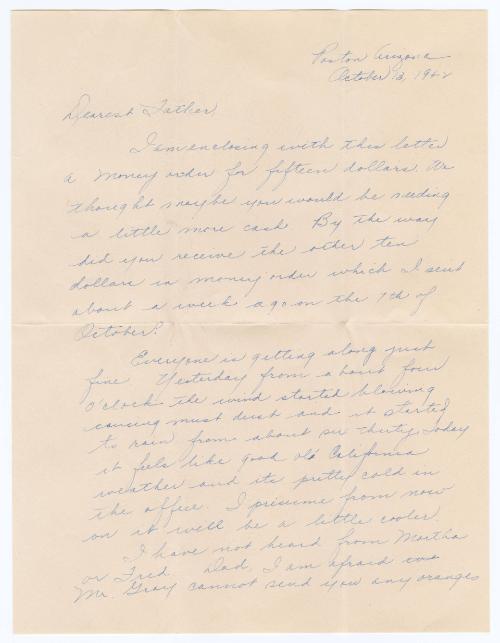 Poston Arizona
October 13, 1942
Dearest Father,
I am enclosing with this letter
a money order for fifteen dollars. We
thought maybe you would be needing
a little more cash. By the way
did you receive the other ten
dollars in money order which I sent
about a week ago on the 7th of
October?
Everyone is getting along just
fine. Yesterday from about four
o'clock the wind started blowing
causing must dust and it started
to rain from about six thirty. Today
it feels like good old California
weather and its pretty cold in
the office. I presume from now
on it will be a little cooler.
I have not heard from Martha
or Fred. Dad, I am afraid
Mr. Gray cannot send you any oranges